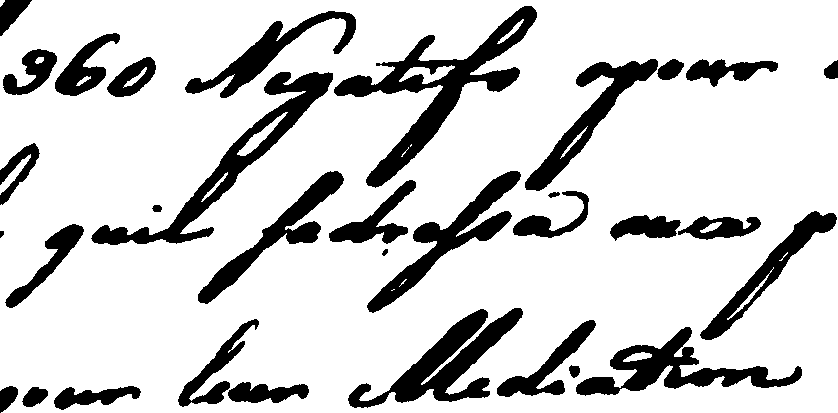 360 Negatifs pour
quil sadressa aux p
pour leur Mediation